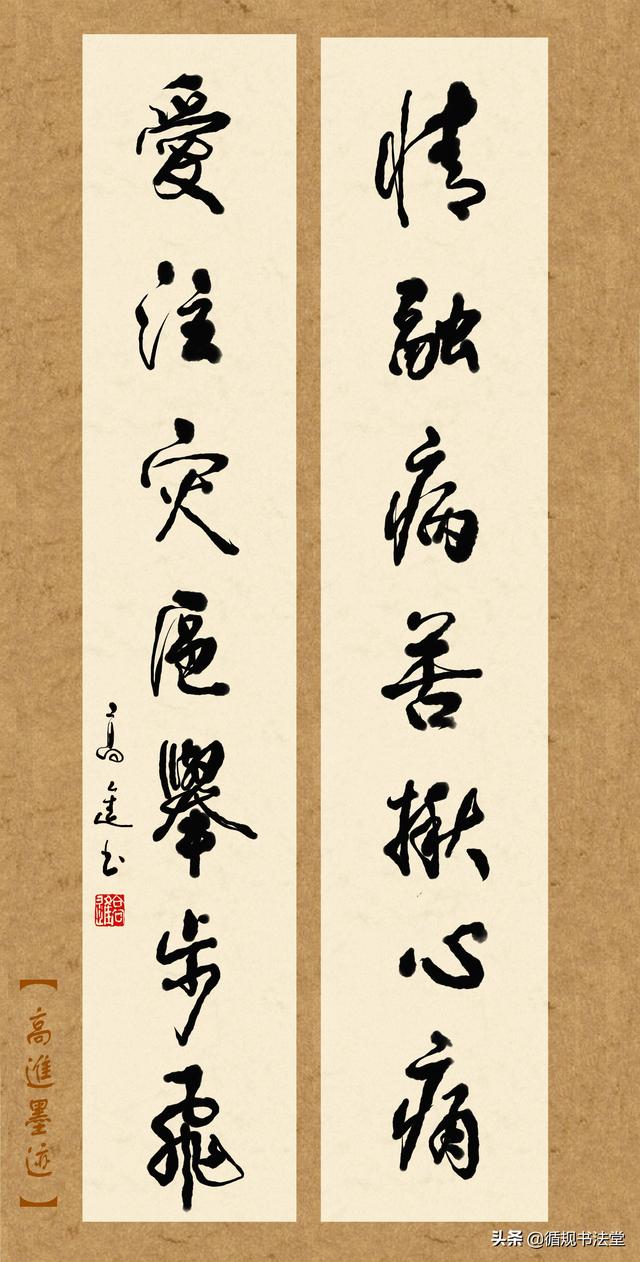 情融病苦揪心痛
愛注灾區舉步飛
高進书
高進
【高進墨迹】
头条 @循规书法堂